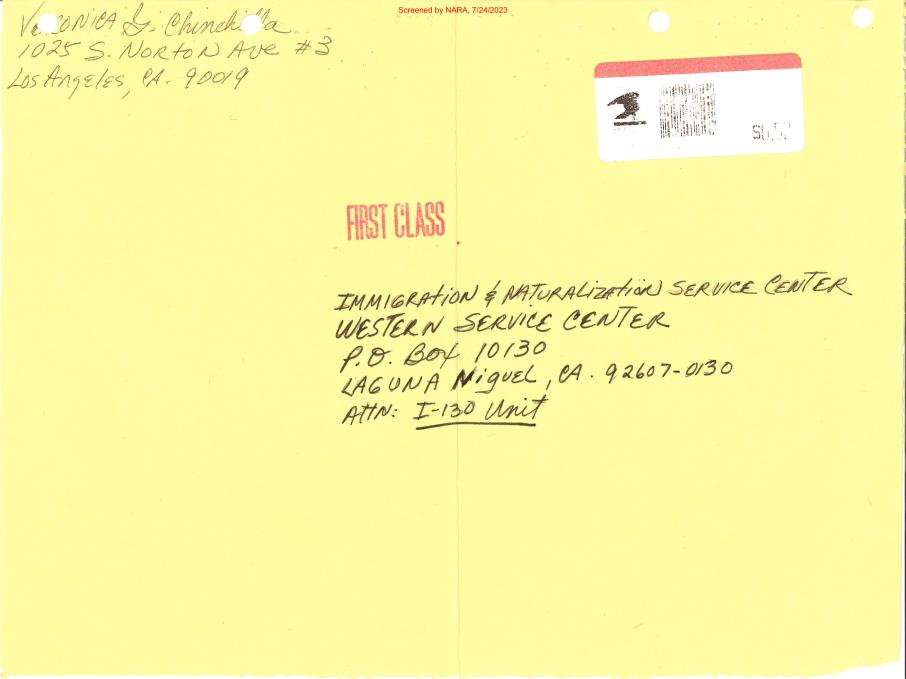 Screened by NARA, 7/24/2023
Veronica G. Chinchilla
1025 S. NORTON AVE #3
Los Angeles, CA. 90019
FIRST CLASS
IMMIGRATION & NATURALIZATION SERVICE CENTER
WESTERN SERVICE CENTER
P.O. Box 10130
LAGUNA NIGUEL, CA. 92607-0130
ATTN: I-130 Unit